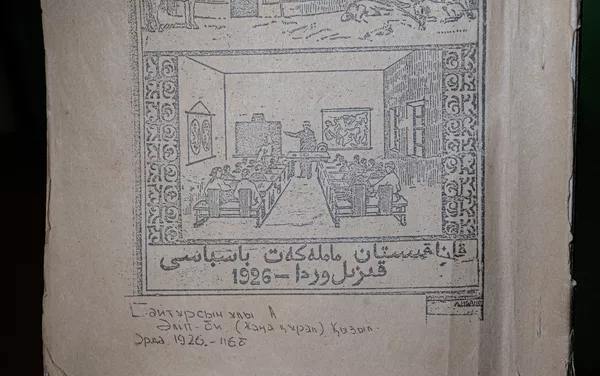 قازاقىستان مامله‌كەت باسباسى
قىزىل وردا – 1926
Байтұрсынұлы А
Әліп-би (жаңа құрал) Қызыл-
Орда 1926.-116б